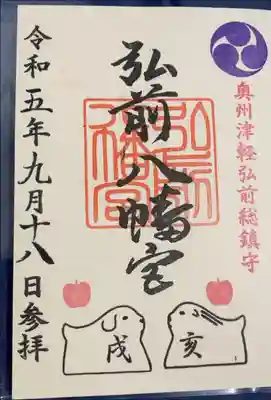 奥州津軽弘前総鎮守
弘前八幡宮
弘前八幡宮
令和五年九月十八日参拝
戌
亥